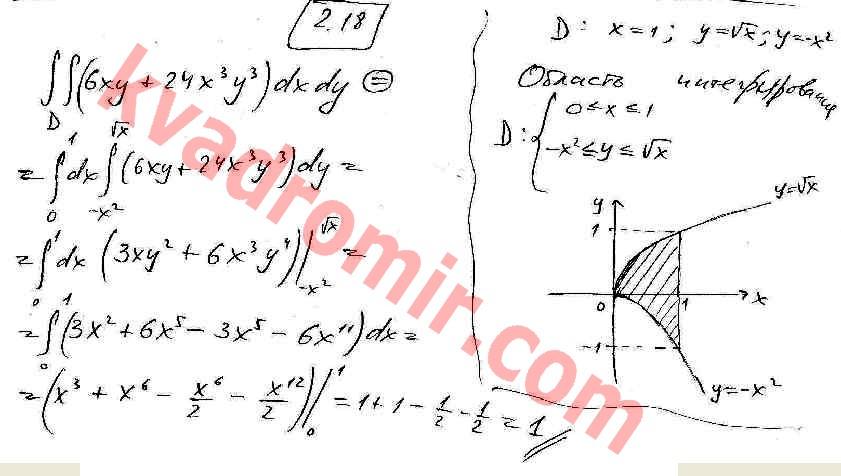 2.18
∫∫_D (6xy + 24x³y³) dx dy =
= ∫₀¹ dx ∫_{-x²}^{√x} (6xy + 24x³y³) dy =
= ∫₀¹ dx (3xy² + 6x³y⁴) |_{-x²}^{√x} =
= ∫₀¹ (3x² + 6x⁵ - 3x⁵ - 6x¹¹) dx =
= (x³ + x⁶ - x⁶/2 - x¹²/2) |₀¹ = 1 + 1 - 1/2 - 1/2 = 1
D: x = 1; y = √x; y = -x²
Область интегрирования
D: { 0 ≤ x ≤ 1
-x² ≤ y ≤ √x
y
y = √x
1
0
1
x
-1
y = -x²
kvadromir.com